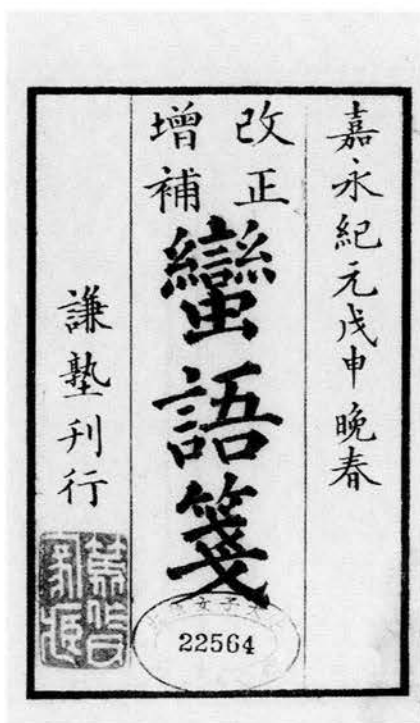 嘉永紀元戊申晩春
改正
增補
蠻語箋
謙塾刊行
女子
22564